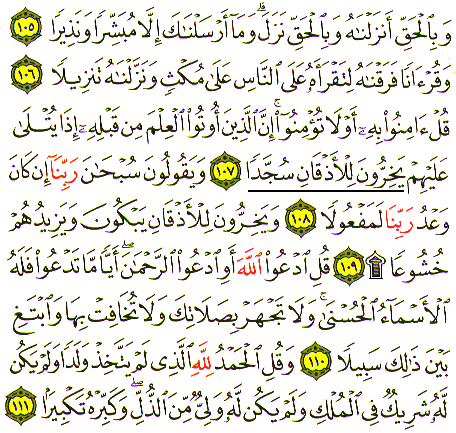 وَبِٱلۡحَقِّ أَنزَلۡنَٰهُ وَبِٱلۡحَقِّ نَزَلَۗ وَمَآ أَرۡسَلۡنَٰكَ إِلَّا مُبَشِّرٗا وَنَذِيرٗا ١٠٥
وَقُرۡءَانٗا فَرَقۡنَٰهُ لِتَقۡرَأَهُۥ عَلَى ٱلنَّاسِ عَلَىٰ مُكۡثٖ وَنَزَّلۡنَٰهُ تَنزِيلٗا ١٠٦
قُلۡ ءَامِنُواْ بِهِۦٓ أَوۡ لَا تُؤۡمِنُوٓاْۚ إِنَّ ٱلَّذِينَ أُوتُواْ ٱلۡعِلۡمَ مِن قَبۡلِهِۦٓ إِذَا يُتۡلَىٰ
عَلَيۡهِمۡ يَخِرُّونَۤ لِلۡأَذۡقَانِۤ سُجَّدٗاۤ ١٠٧ وَيَقُولُونَ سُبۡحَٰنَ رَبِّنَآ إِن كَانَ
وَعۡدُ رَبِّنَا لَمَفۡعُولٗا ١٠٨ وَيَخِرُّونَ لِلۡأَذۡقَانِ يَبۡكُونَ وَيَزِيدُهُمۡ
خُشُوعٗا۩ ١٠٩ قُلِ ٱدۡعُواْ ٱللَّهَ أَوِ ٱدۡعُواْ ٱلرَّحۡمَٰنَۖ أَيّٗا مَّا تَدۡعُواْ فَلَهُ
ٱلۡأَسۡمَآءُ ٱلۡحُسۡنَىٰۚ وَلَا تَجۡهَرۡ بِصَلَاتِكَ وَلَا تُخَافِتۡ بِهَا وَٱبۡتَغِ
بَيۡنَ ذَٰلِكَ سَبِيلٗا ١١٠ وَقُلِ ٱلۡحَمۡدُ لِلَّهِ ٱلَّذِي لَمۡ يَتَّخِذۡ وَلَدٗا وَلَمۡ يَكُن
لَّهُۥ شَرِيكٞ فِي ٱلۡمُلۡكِ وَلَمۡ يَكُن لَّهُۥ وَلِيّٞ مِّنَ ٱلذُّلِّۖ وَكَبِّرۡهُ تَكۡبِيرَۢا ١١١